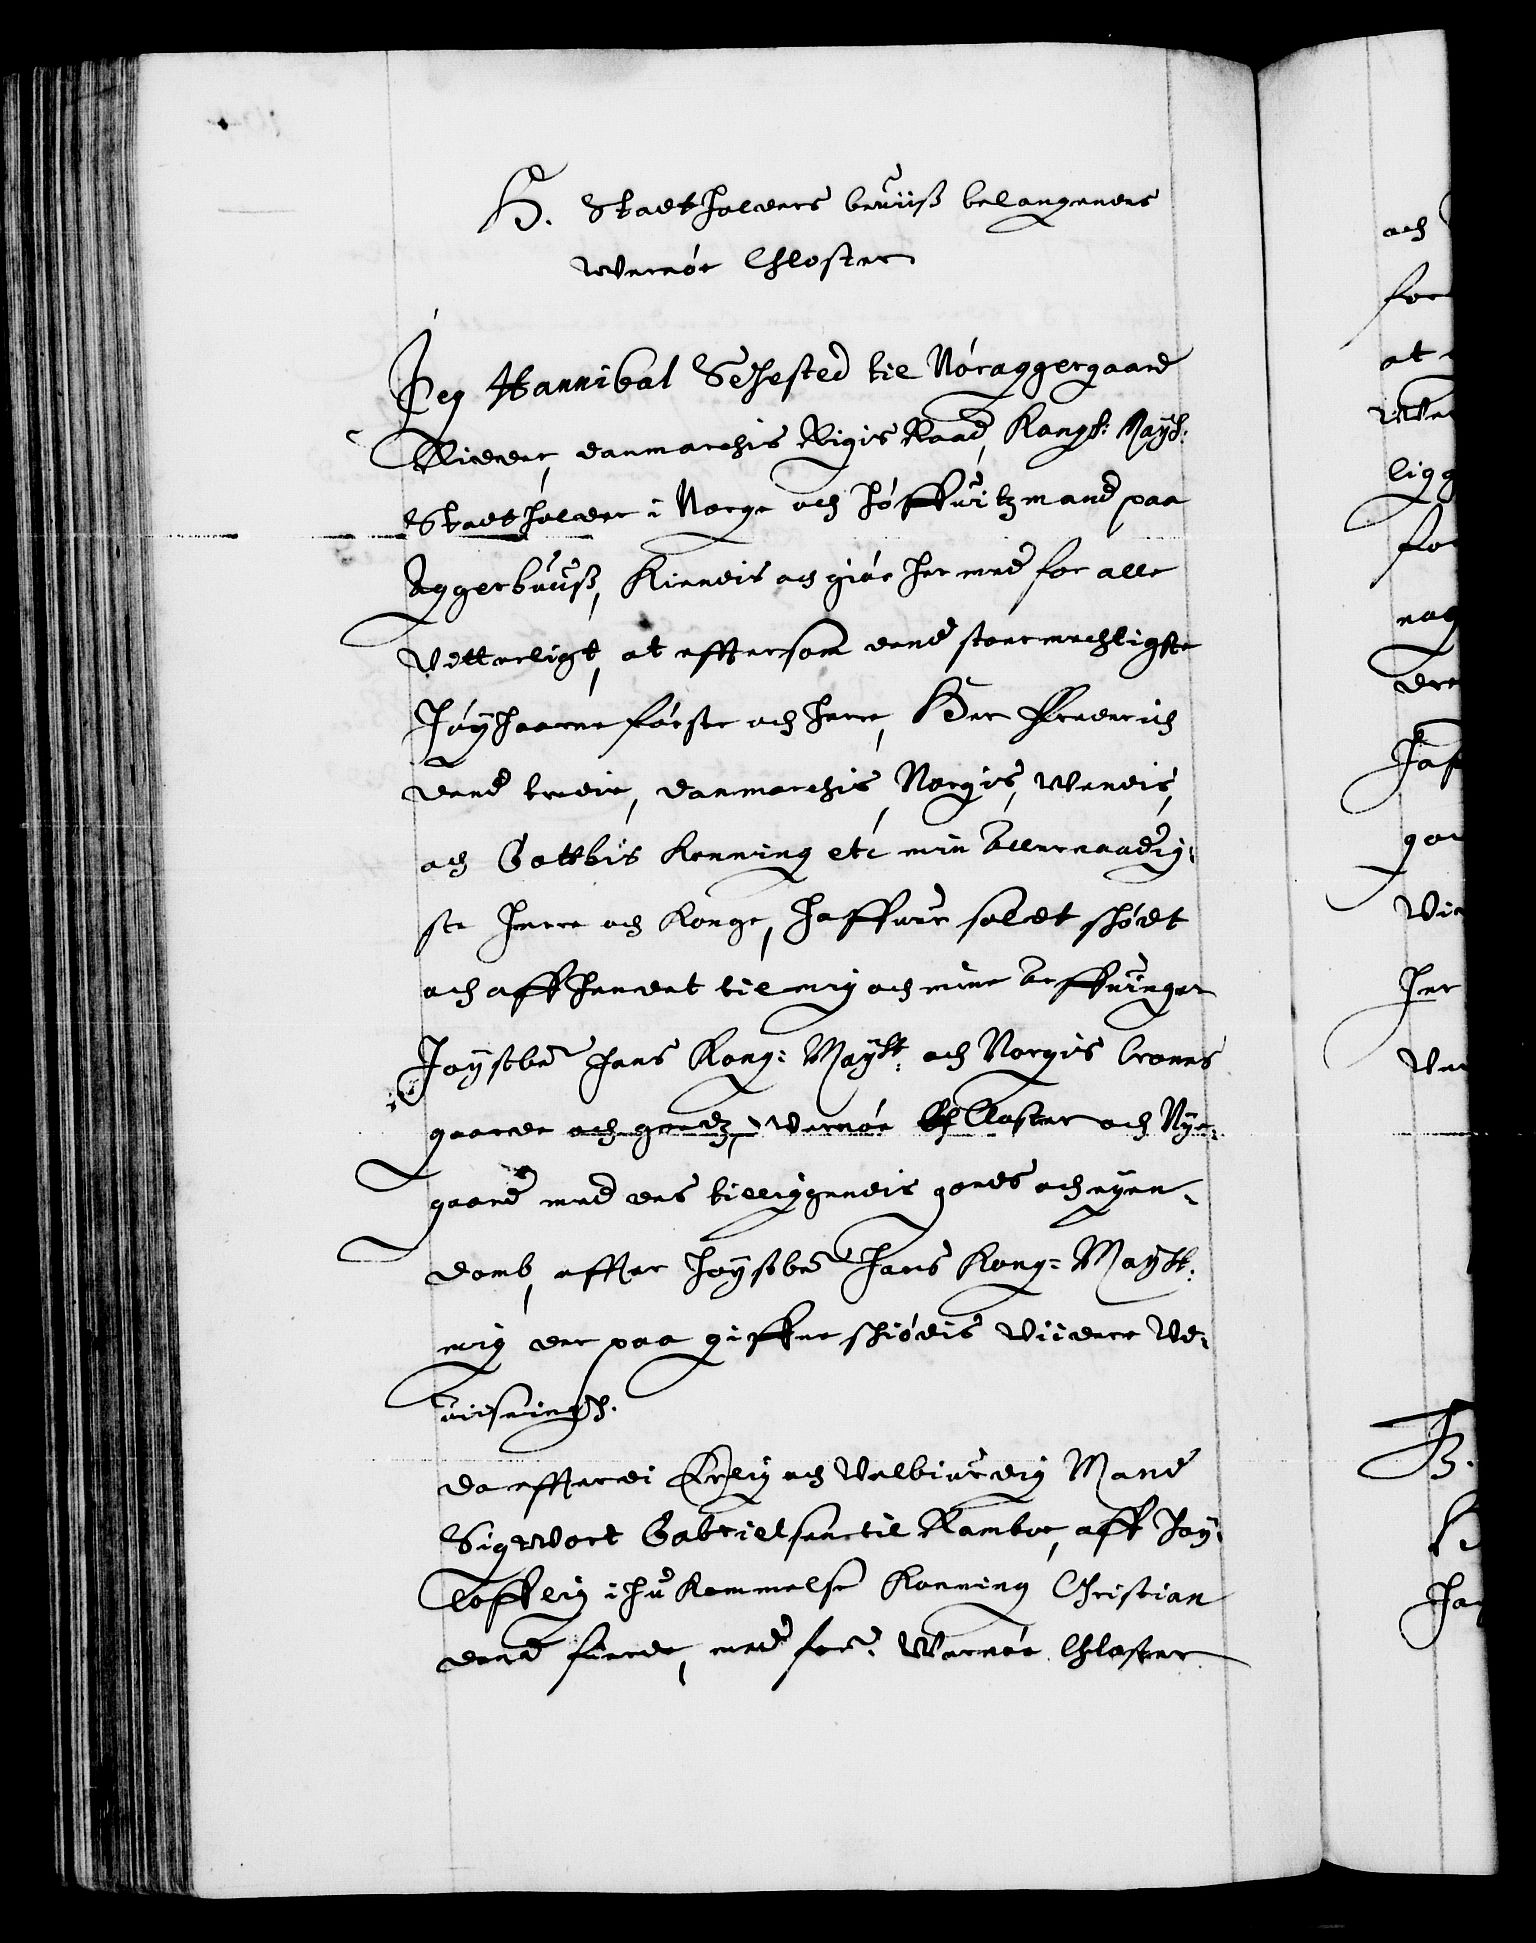 H. Stadtholders beviiß belangende
Wernöe Chloster
Jeg Hannibal Sehested til Nöraggergaard
Ridder, danmarchis Rigis Raad, Kongl: Mayt:
Stadtholder i Norge och höffvitzmand paa
Aggerhuuß, Kiendis och giör her med for alle
Vitterligt, at efftersom dend stoermechtigste
Höyhaarne förste och herre, Her Frederich
dend tredie, danmarchis, Norgis, Wendis,
och Gottbis Konning etc min allernaadig:
ste herre och Konge, haffver soldt shödt
och affhendet til mig och mine Arffvinger
Höystbete hans Kong: Mayt: och Norgis Crones
gaarde och goedz, Wernöe Closter och Nye:
gaard med des tilliggendis goeds och eyen-
domb, effter höystbete hans Kong: Mayt:
mig der paa giffne shiödis viidere ud:
viisning.
da efftterdi Erlig och Velbiurdig Mand
Sigwort Gabrielsen til Ramboe, aff höy:
lofflig ihu Kommelse Konning Christian
dend fierde, med fore: Wernöe Chloster
och
for
at
ligg
for
nog
dre
gor
Her
H.